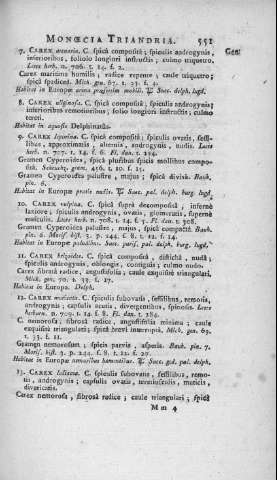 MONŒCIA TRIANDRIA. 551
7. CAREX arenaria. C. spicâ compositâ; spiculis androgynis, Gen:
inferioribus, foliolo longiori instructis; culmo triquetro.
Leers herb. n. 706. t. 14. f. 2.
Carex maritima humilis; radice repente; caule triquetro;
spicâ spadiceâ. Mich. gen. 67. t. 33. f. 4.
Habitat in Europæ arenâ præsertim mobili. ♃ Suec. delph. lugd.
8. CAREX uliginosa. C. spicâ compositâ; spiculis androgynis;
inferioribus remotioribus; folio longiori instructis; culmo
tereti.
Habitat in aquosis Delphinatûs.
9. CAREX leporina. C. spicâ compositâ; spiculis ovatis, sessi-
libus, approximatis, alternis, androgynis, nudis. Leers
herb. n. 707. t. 14. f. 6. Fl. dan. t. 294.
Gramen Cyperoides, spicâ pluribus spicis mollibus compo-
sitâ. Scheuchz. gram. 456. t. 10. f. 15.
Gramen Cyperoides palustre, majus; spicâ divisâ. Bauh.
pin. 6.
Habitat in Europæ pratis nudis. ♃ Suec. pal. delph. burg. lugd.
10. CAREX vulpina. C. spicâ suprà decompositâ, infernè
laxiore; spiculis androgynis, ovatis, glomeratis, supernè
masculis. Leers herb. n. 708. t. 14. f. 5. Fl. dan. t. 308.
Gramen Cyperoides palustre, majus, spicâ compactâ. Bauh.
pin. 6. Morif. hist. 3. p. 244. s. 8. t. 12. f. 24.
Habitat in Europæ paludibus. Suec. paris. pal. delph. burg. lugd.
11. CAREX brizoides. C. spicâ compositâ, distichâ, nudâ;
spiculis androgynis, oblongis, contiguis; culmo nudo.
Carex fibratâ radice, angustifolia; caule exquisitè triangulari.
Mich. gen. 70. t. 33. f. 17.
Habitat in Europa. Delph.
12. CAREX muricata. C. spiculis subovatis, sessilibus, remotis,
androgynis; capsulis acutis, divergentibus, spinosis. Leers
herborn. n. 709. t. 14. f. 8. Fl. dan. t. 284.
C. nemorosa, fibrosâ radice, angustifolia minima; caule
exquisitè triangulari; spicâ brevi interruptâ. Mich. gen. 69.
t. 33. f. 11.
Gramen nemorosum; spicis parvis, asperis. Bauh. pin. 7.
Morif. hist. 3. p. 244. s. 8. t. 12. f. 27.
Habitat in Europæ nemoribus humentibus. ♃ Suec. gal. pal. delph.
13. CAREX loliacea. C. spiculis subovatis, sessilibus, remo-
tis, androgynis; capsulis ovatis, teretiusculis, muticis,
divaricatis.
Carex nemorosa; fibrosâ radice; caule triangulari; spicâ
M m 4